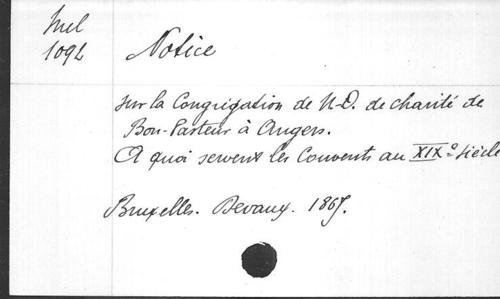 Mel
1092
Notice
sur la Congrégation de N-D. de charité de
Bon-Pasteur à Angers.
A quoi servent les Couvents au XIXe siècle
Bruxelles. Devaux. 1867.